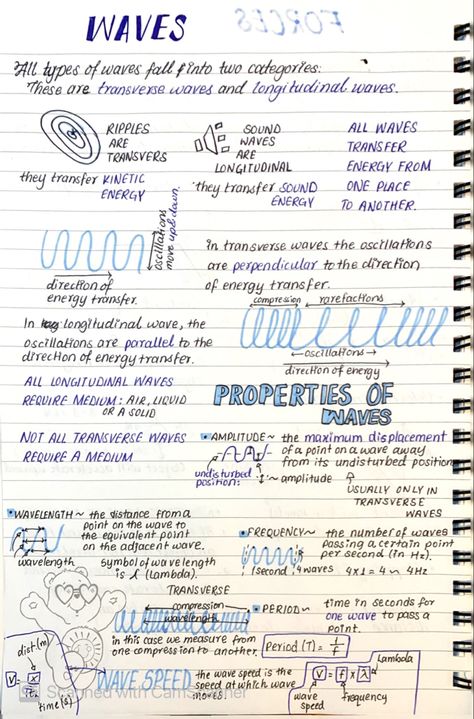 WAVES
FORCES
All types of waves fall into two categories.
These are transverse waves and longitudinal waves.
RIPPLES
ARE
TRANSVERS
they transfer KINETIC
ENERGY
SOUND
WAVES
ARE
LONGITUDINAL
they transfer SOUND
ENERGY
ALL WAVES
TRANSFER
ENERGY FROM
ONE PLACE
TO ANOTHER.
oscillations
move up & down.
direction of
energy transfer.
in transverse waves the oscillations
are perpendicular to the direction
of energy transfer.
compression
rarefactions
oscillations
direction of energy
In longitudinal wave, the
oscillations are parallel to the
direction of energy transfer.
ALL LONGITUDINAL WAVES
REQUIRE MEDIUM: AIR, LIQUID
OR A SOLID
NOT ALL TRANSVERSE WAVES
REQUIRE A MEDIUM
PROPERTIES OF
WAVES
AMPLITUDE ~ the maximum displacement
of a point on a wave away
from its undisturbed position
undisturbed
position:
~ amplitude
USUALLY ONLY IN
TRANSVERSE
WAVES
WAVELENGTH ~ the distance from a
point on the wave to
the equivalent point
on the adjacent wave.
wavelength
symbol of wavelength
is λ (Lambda).
FREQUENCY ~ the number of waves
passing a certain point
per second (in Hz).
1 second
4 waves
4x1 = 4 ~ 4Hz
TRANSVERSE
compression
wavelength
in this case we measure from
one compression to another.
PERIOD ~ time in seconds for
one wave to pass a
point.
Period (T) = 1/f
dist.(m)
V = x/t
time(s)
WAVE SPEED
the wave speed is the
speed at which wave
moves.
Lambda
V = f x λ
wave
speed
frequency
Scanned with CamScanner